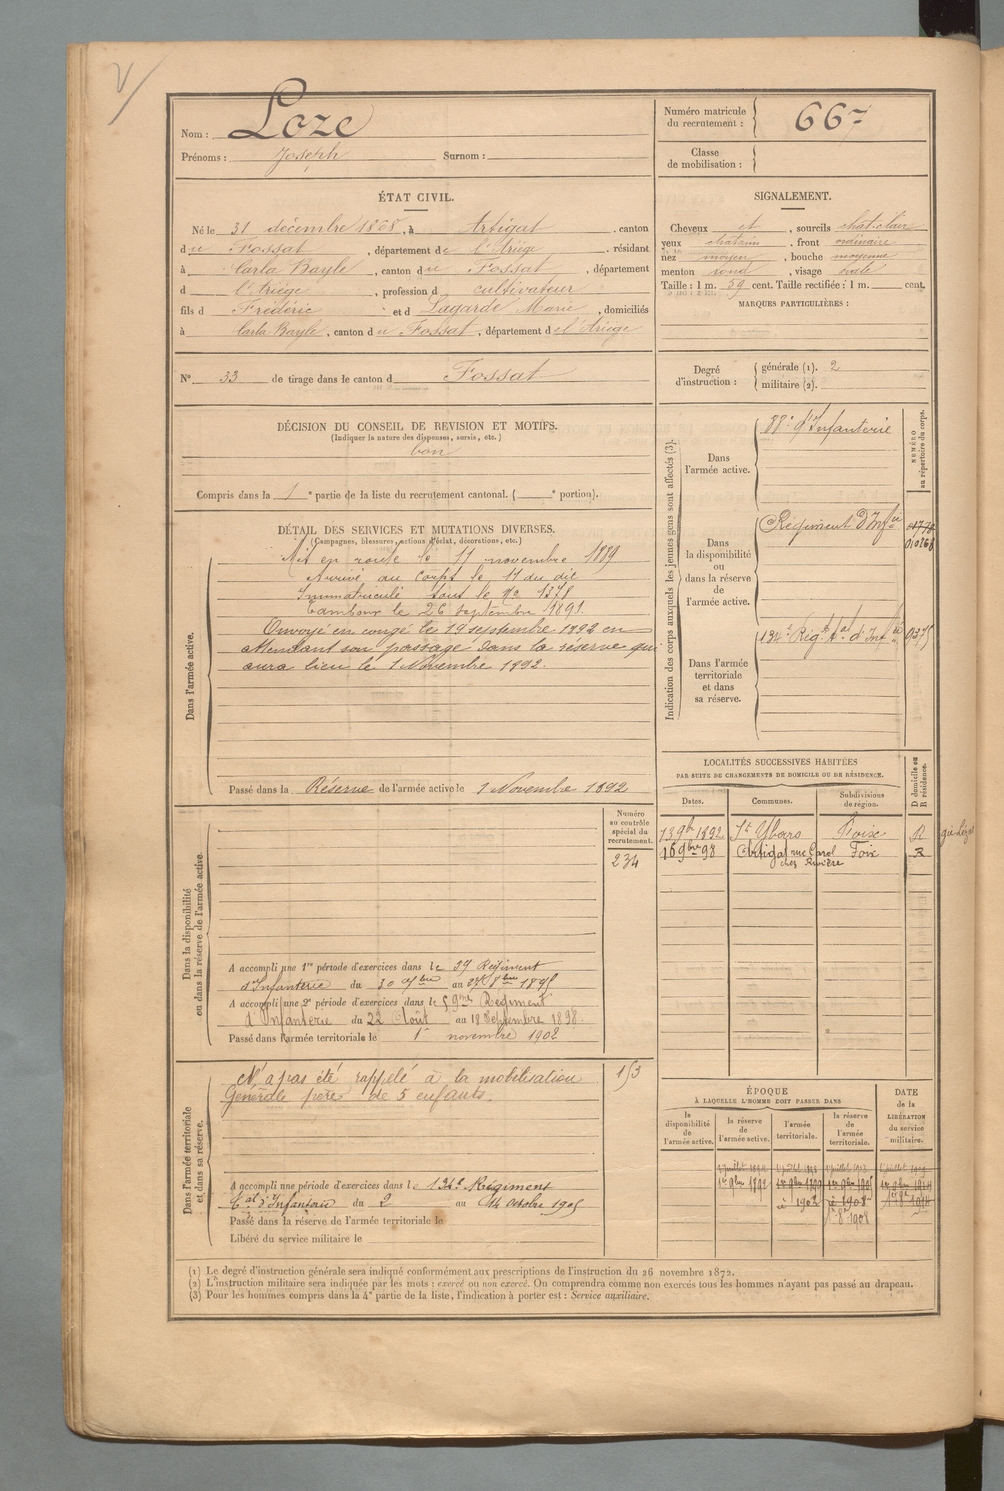 Nom : Loze
Prénoms : Joseph Surnom :
Numéro matricule du recrutement : 667
Classe de mobilisation :
ÉTAT CIVIL.
Né le 31 décembre 1868, à Artigat, canton
du Fossat, département de l'Ariège, résidant
à Carla Bayle, canton du Fossat, département
d l'Ariège, profession d cultivateur
fils d Frédéric et d Lagarde Marie, domiciliés
à Carla Bayle, canton du Fossat, département de l'Ariège
SIGNALEMENT.
Cheveux et, sourcils chat. clair
yeux chatain, front ordinaire
nez moyen, bouche moyenne
menton rond, visage ovale
Taille : 1 m. 59 cent. Taille rectifiée : 1 m. cent.
MARQUES PARTICULIÈRES :
N° 33 de tirage dans le canton d Fossat
Degré d'instruction : générale (1). 2
militaire (2).
DÉCISION DU CONSEIL DE REVISION ET MOTIFS.
(Indiquer la nature des dispenses, sursis, etc.)
bon
Compris dans la 1e partie de la liste du recrutement cantonal. ( e portion).
DÉTAIL DES SERVICES ET MUTATIONS DIVERSES.
(Campagnes, blessures, actions d'éclat, décorations, etc.)
Dans l'armée active.
Mis en route le 11 novembre 1889
Arrivé au corps le 11 du dit
Immatriculé sous le No 1378
Tambour le 26 Septembre 1891.
Envoyé en congé le 19 septembre 1892 en
attendant son passage dans la réserve qui
aura lieu le 1 Novembre 1892.
Passé dans la Réserve de l'armée active le 1 Novembre 1892
Indication des corps auxquels les jeunes gens sont affectés (3).
NUMÉRO au répertoire du corps.
Dans l'armée active.
88e d'Infanterie
Dans la disponibilité ou dans la réserve de l'armée active.
Régiment d'Infie
010268
Dans l'armée territoriale et dans sa réserve.
134e Régt tal d'Infie
LOCALITÉS SUCCESSIVES HABITÉES
PAR SUITE DE CHANGEMENTS DE DOMICILE OU DE RÉSIDENCE.
D domicile ou R résidence.
Dates. Communes. Subdivisions de région.
13 9b 1892 St Ybars Foix R
16 9bre 98 Artigat rue Carol Foix R
chez Rivière
Dans la disponibilité ou dans la réserve de l'armée active
Numéro au contrôle spécial du recrutement.
234
A accompli une 1re période d'exercices dans le 59 Régiment
d'Infanterie du 30 7bre au 27 8bre 1895
A accompli une 2e période d'exercices dans le 59me Régiment
d'Infanterie du 22 Août au 18 Septembre 1898.
Passé dans l'armée territoriale le 1r novembre 1902
Dans l'armée territoriale et dans sa réserve.
N'a pas été rappelé à la mobilisation
Générale père de 5 enfants.
153
A accompli une période d'exercices dans le 134e Régiment
tal d'Infanterie du 2 au 14 Octobre 1905
Passé dans la réserve de l'armée territoriale le
Libéré du service militaire le
ÉPOQUE
À LAQUELLE L'HOMME DOIT PASSER DANS
DATE de la LIBÉRATION du service militaire.
la disponibilité de l'armée active. la réserve de l'armée active. l'armée territoriale. la réserve de l'armée territoriale.
1er 9bre 1892
à 1902 à 1908
(1) Le degré d'instruction générale sera indiqué conformément aux prescriptions de l'instruction du 26 novembre 1872.
(2) L'instruction militaire sera indiquée par les mots : exercé ou non exercé. On comprendra comme non exercés tous les hommes n'ayant pas passé au drapeau.
(3) Pour les hommes compris dans la 4e partie de la liste, l'indication à porter est : Service auxiliaire.